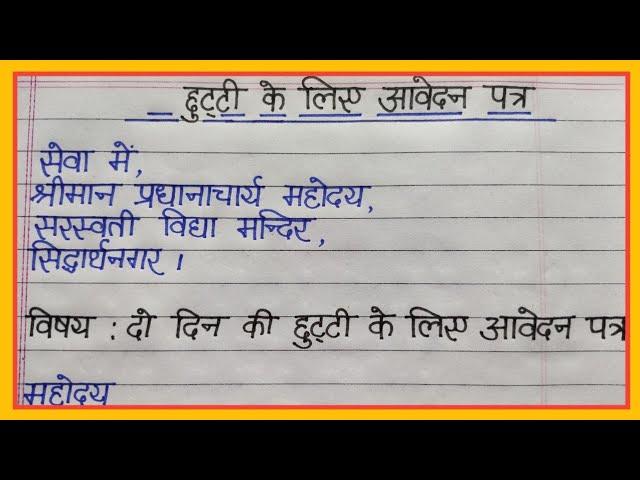 छुट्टी के लिए आवेदन पत्र
सेवा में,
श्रीमान प्रधानाचार्य महोदय,
सरस्वती विद्या मन्दिर,
सिद्धार्थनगर।
विषय : दो दिन की छुट्टी के लिए आवेदन पत्र
महोदय